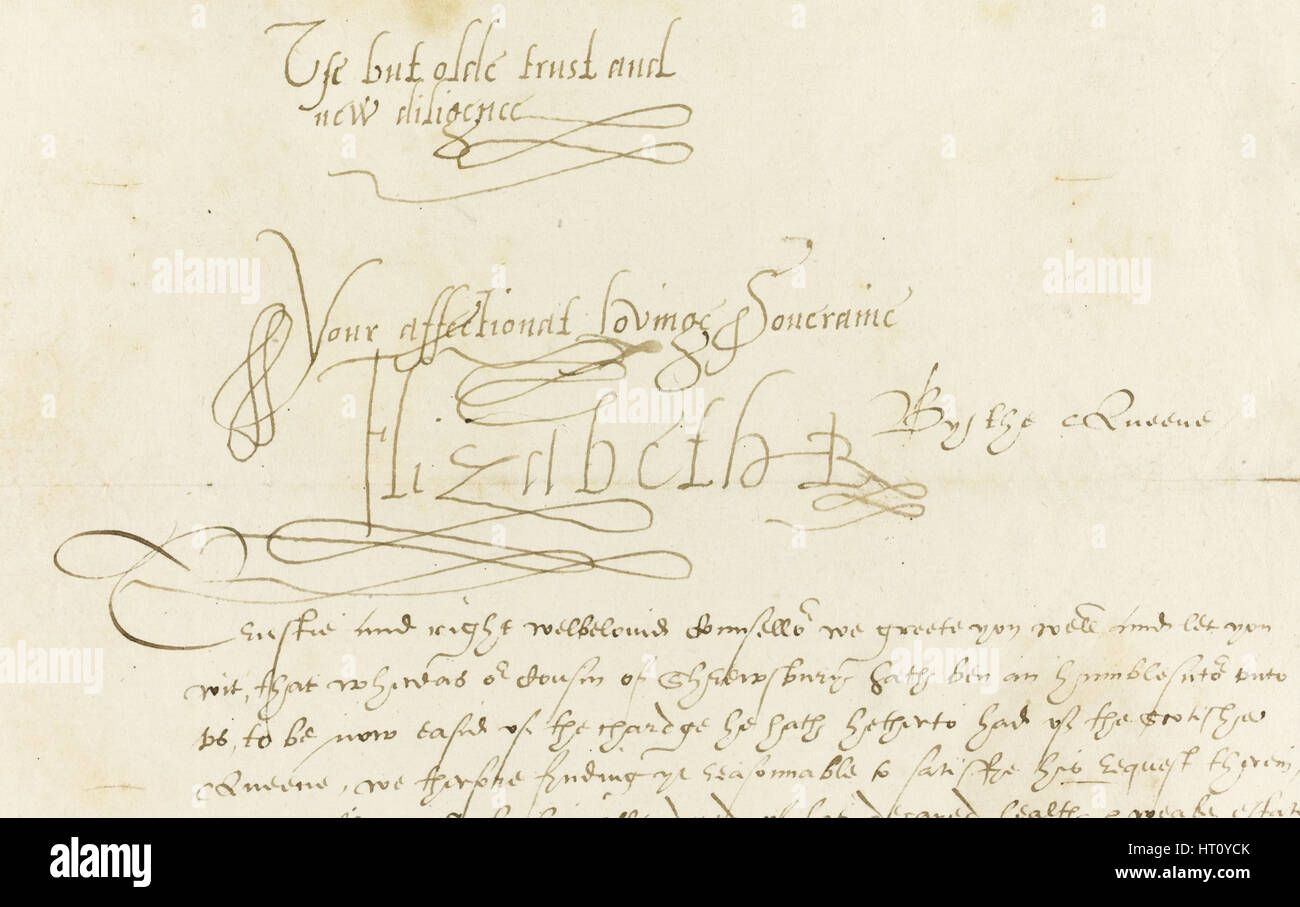 Use but olde trust and
new diligence
Your affectionat lovinge Soueraine
Elizabeth R
By the Queene
Trustie and right welbelovid Counsellor we greete you well, and let you
wit, that whereas or Cousin of Shrewsbury hath ben an humble sutor vnto
vs, to be now easid of the chardge he hath hetherto had of the Scotishe
Queene, we therfore finding yt reasonnable to satisfie his request therein,
healthe weake estate
alamy
alamy
alamy
alamy
alamy
alamy
alamy
Image ID: HT0YCK
www.alamy.com